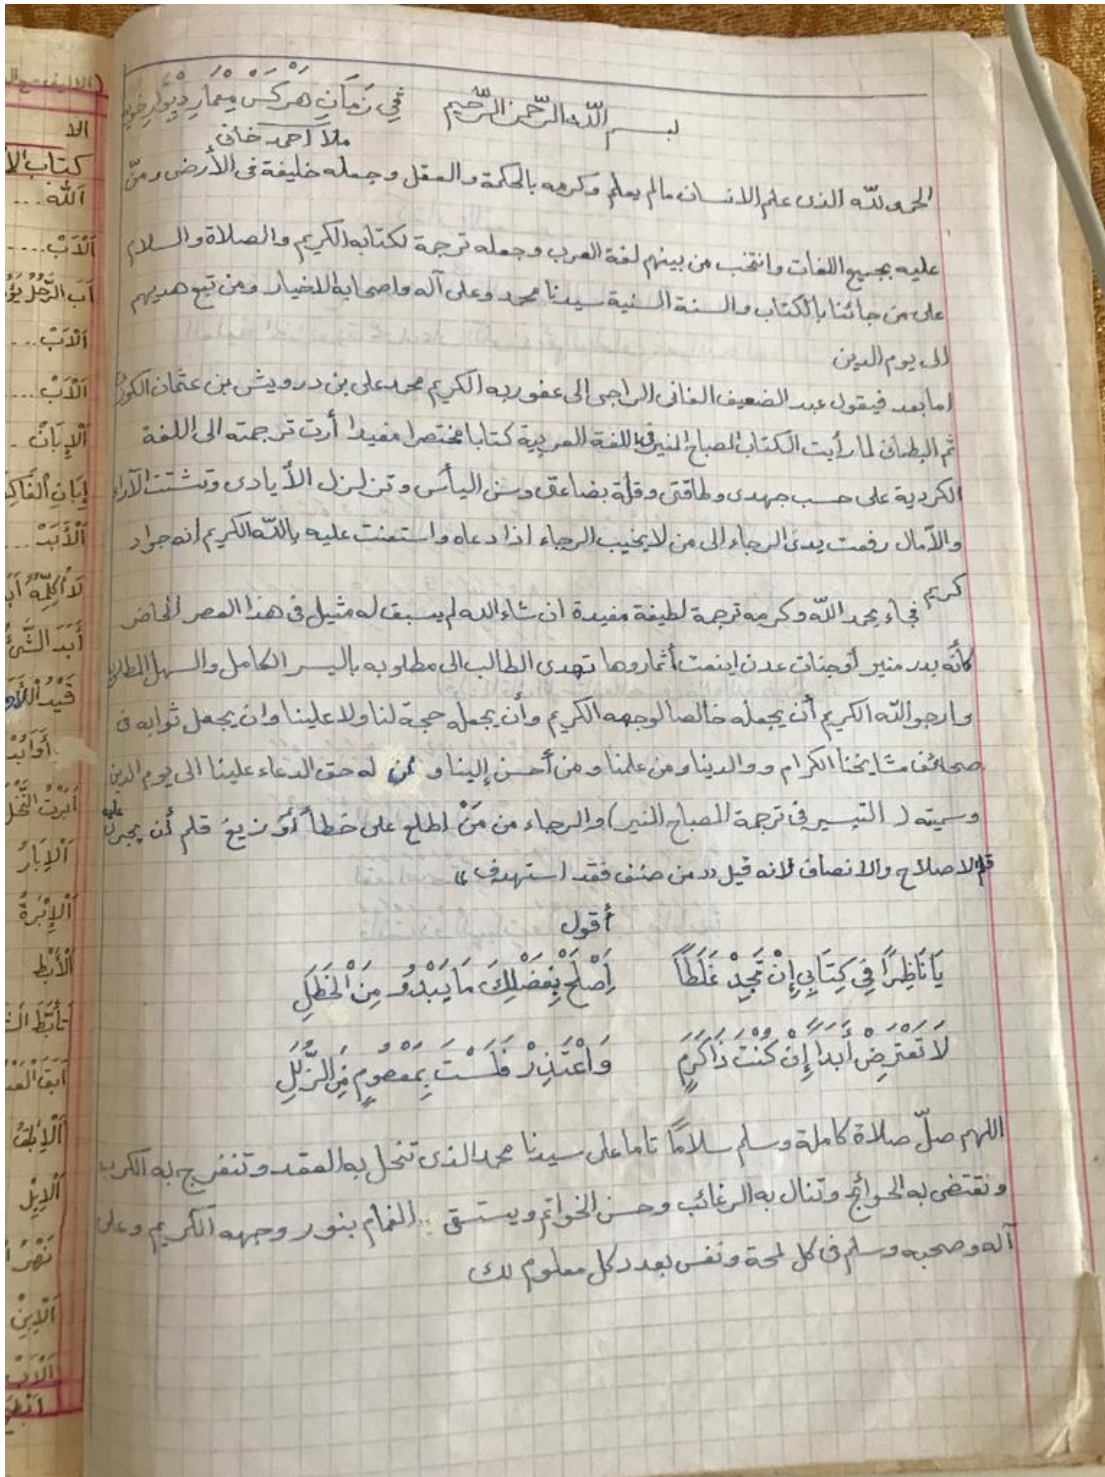 بسم الله الرحمن الرحيم
في زَمَانِ هَرْكَسْ مِعْمَارِ دِيْوَارِ خويه
ملا احمد خانى
الحمد لله الذى علم الانسان مالم يعلم وكرمه بالحكمة والعقل وجعله خليفة فى الأرض ومنّ
عليه بجميع اللغات وانتخب من بينهم لغة العرب وجعله ترجمة لكتابه الكريم والصلاة والسلام
على من جائنا بالكتاب والسنة السنية سيدنا محمد وعلى آله واصحابه الاخيار ومن تبع هديهم
الى يوم الدين
اما بعد فيقول عبد الضعيف الفانى الراجى الى عفو ربه الكريم محمد على بن درويش بن عثمان
ثم لما رأيت الكتاب المصباح المنير فى اللغة العربية كتابا مختصرا مفيدا أردت ترجمته الى اللغة
الكردية على حسب جهدى وطاقتى وقلة بضاعتى وسن اليأس وتزلزل الأيادى وتشتت الآراء
والآمال رفعت يدى الرجاء الى من لا يخيب الرجاء اذا دعاه واستعنت عليه بالله الكريم انه جواد
كريم
فجاء بحمد الله وكرمه ترجمة لطيفة مفيدة ان شاء الله لم يسبق له مثيل فى هذا العصر الحاضر
كأنّه بدر منير أوجنات عدن اينعت أثماروها تهدى الطالب الى مطلوبه باليسر الكامل والسهل
وارجو الله الكريم أن يجعله خالصا لوجهه الكريم وأن يجعله حجة لنا ولا علينا وان يجعل ثوابه فى
صحائف مشايخنا الكرام ووالدينا ومن علمنا ومن أحسن إلينا و من له حق الدعاء علينا الى يوم الدين
وسميته ( التيسير فى ترجمة المصباح المنير) والرجاء من مَنْ اطلع على خطأ أو زيغ قلم أن يجرى عليه
قلم الاصلاح والانصاف لانه قيل «من صنف فقد استهدف»
أقول
يَا نَاظِرًا فِي كِتَابِي إِنْ تَجِدْ غَلَطاً اِصْلَحْ بِفَضْلِكَ مَا يَبْدُو مِنَ الْخَطَلِ
لَا تَعْتَرِضْ أَبَداً إِنْ كُنْتَ ذَا كَرَمٍ وَاعْتَذِرْ فَلَسْتَ بِمَعْصُومٍ مِنَ الزَّلَلِ
اللهم صلّ صلاة كاملة وسلم سلامًا تاما على سيدنا محمد الذى تنحل به العقد وتنفرج به الكرب
وتقتضى به الحوائج وتنال به الرغائب وحسن الخواتم ويستسقى الغمام بنور وجهه الكريم وعلى
آله وصحبه وسلم فى كل لمحة ونفس بعدد كل معلوم لك
كتاب الا
الله...
اَلْاَبُ....
اَلْاَبُ...
اَلْاَبُ...
اَلْاِبَّانُ
اَلْاَبَدُ...
قَيْدُ الْاَوَ
أَوَابِدُ
اَلْاِبَارُ
اَلْاِبْرَةُ
اَلْاِبْطُ
اَلْاِبِلُ
اَلْاِبْنُ